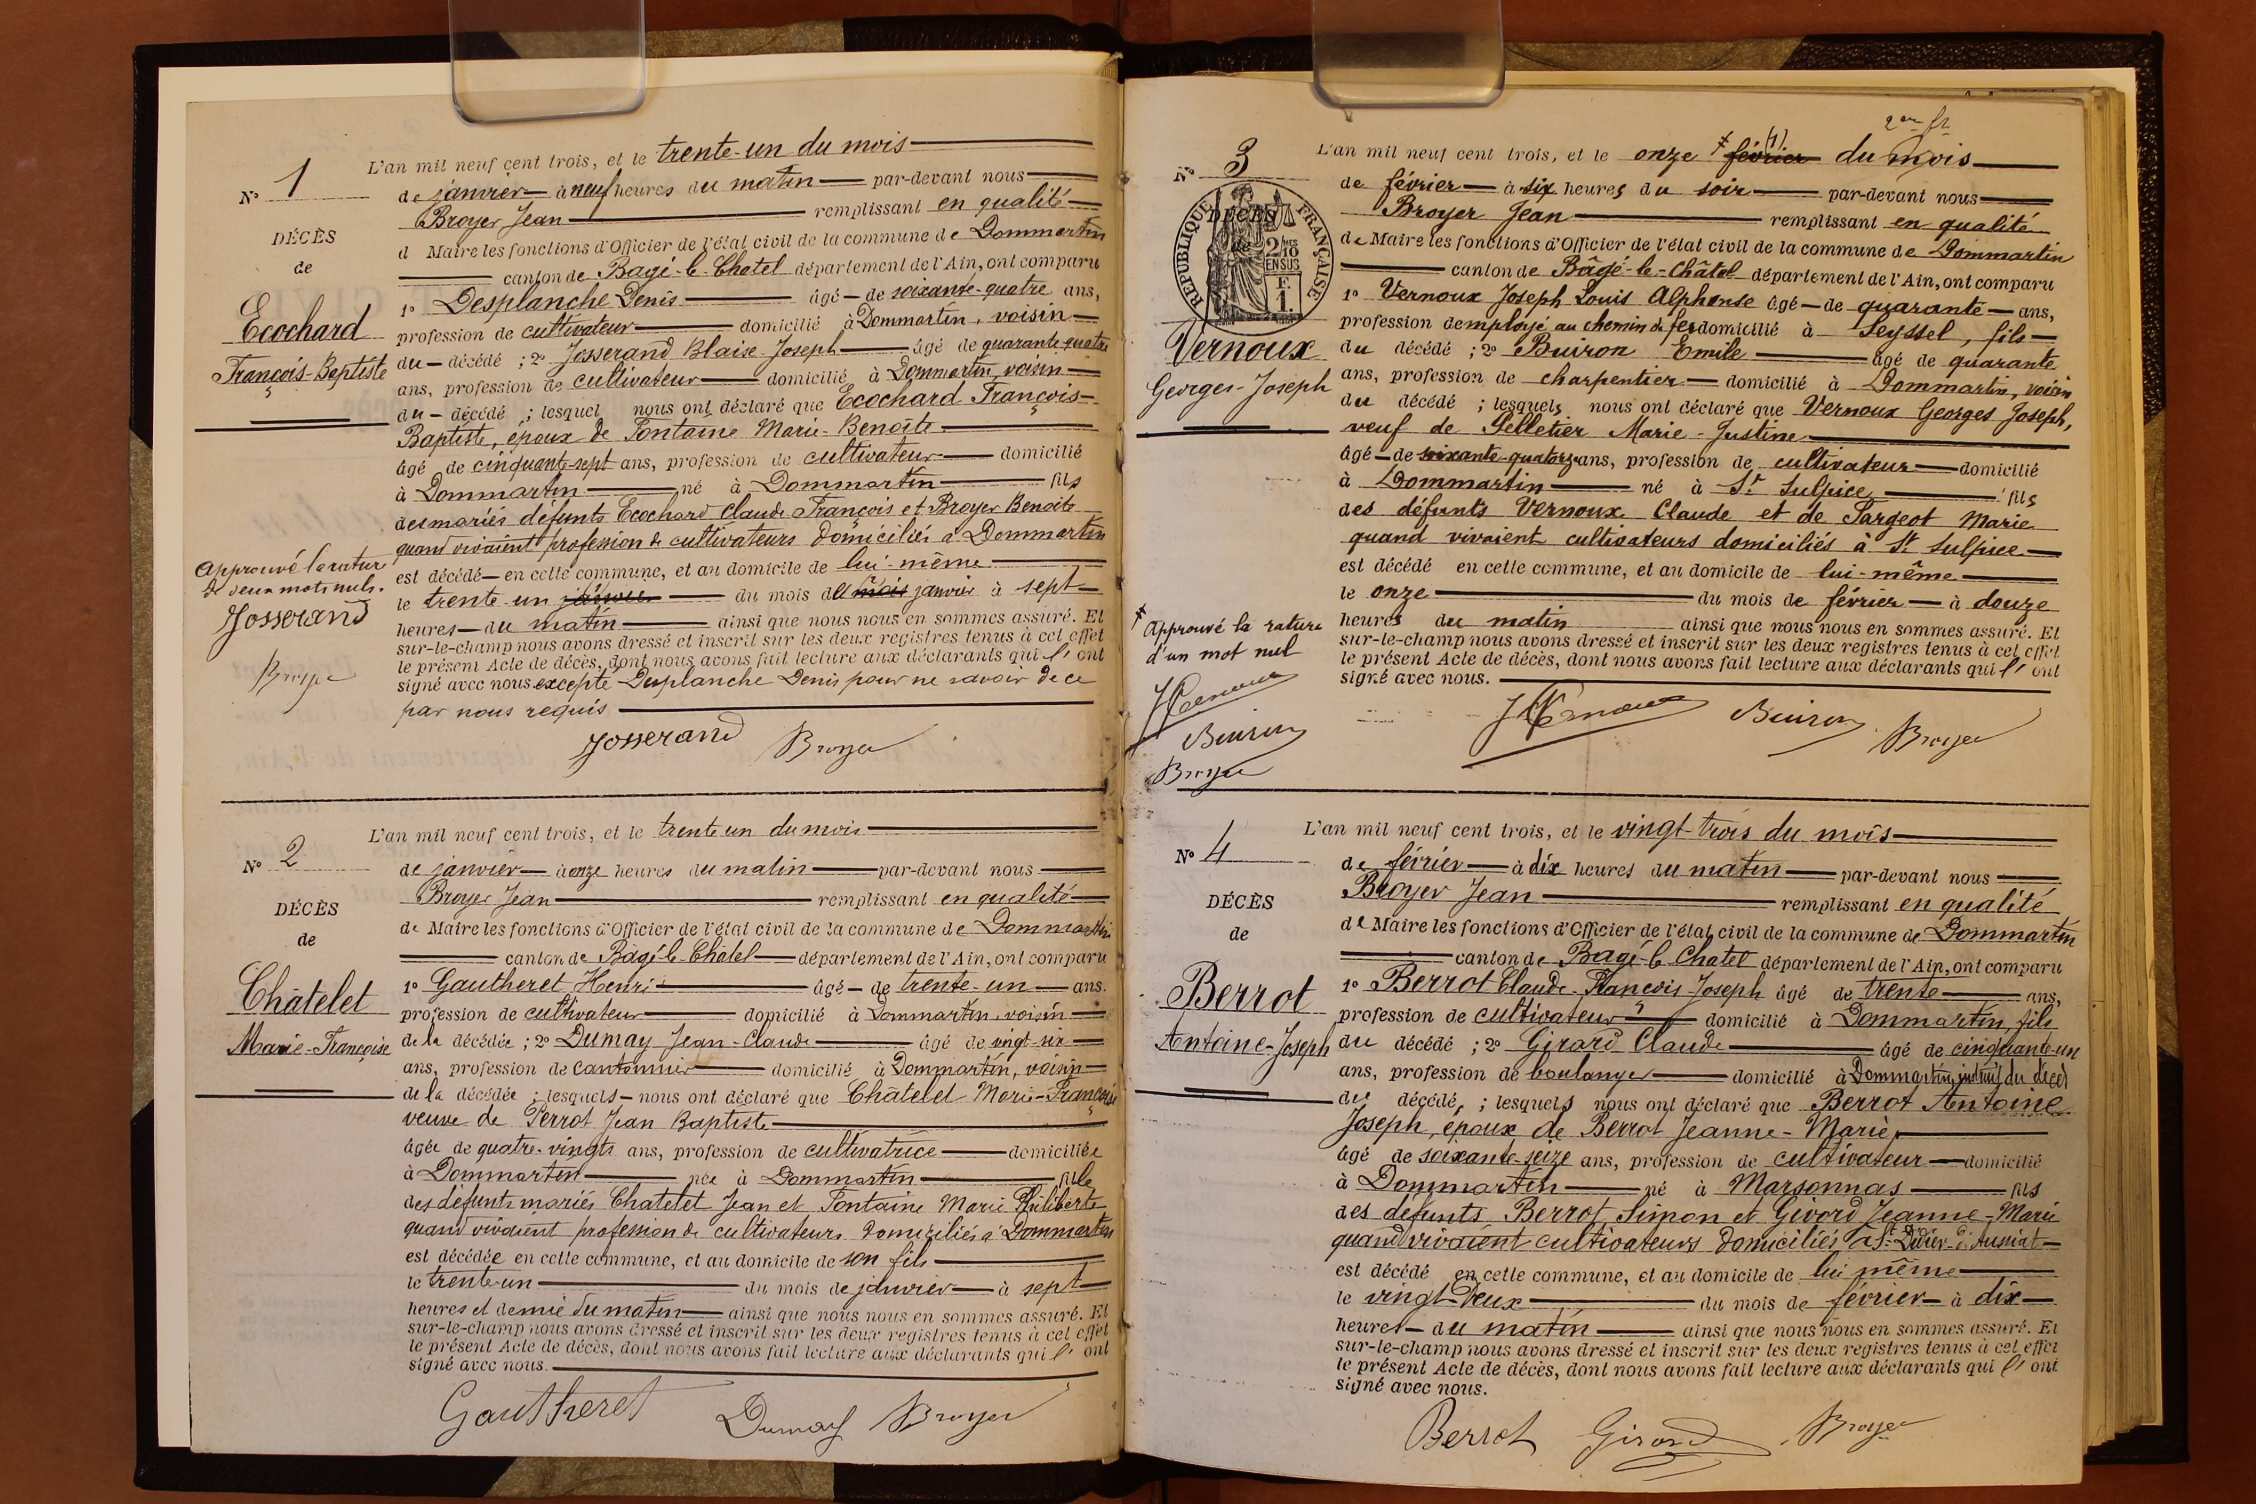 N° 1
DÉCÈS
de
Ecochard
François-Baptiste
L'an mil neuf cent trois, et le trente-un du mois
de janvier à neuf heures du matin par-devant nous
Broyer Jean remplissant en qualité
d Maire les fonctions d'Officier de l'état civil de la commune de Dommartin
canton de Bagé-le-Chatel département de l'Ain, ont comparu
1° Desplanche Denis âgé de soixante-quatre ans,
profession de cultivateur domicilié à Dommartin, voisin
du décédé ; 2° Josserand Blaise Joseph âgé de quarante quatre
ans, profession de cultivateur domicilié à Dommartin, voisin
du décédé ; lesquel nous ont déclaré que Ecochard François-
Baptiste, époux de Fontaine Marie-Benoite
âgé de cinquante-sept ans, profession de cultivateur domicilié
à Dommartin né à Dommartin fils
des mariés défunts Ecochard Claude François et Broyer Benoite
quand vivaient profession de cultivateurs domiciliés à Dommartin
est décédé en cette commune, et au domicile de lui-même
le trente un janvier du mois de mois janvier à sept
heures du matin ainsi que nous nous en sommes assuré. Et
sur-le-champ nous avons dressé et inscrit sur les deux registres tenus à cet effet
le présent Acte de décès, dont nous avons fait lecture aux déclarants qui l'ont
signé avec nous excepté Desplanche Denis pour ne savoir de ce
par nous requis
Josserand Broyer
Approuvé la rature
de deux mots nuls.
Josserand
Broyer
N° 2
DÉCÈS
de
Châtelet
Marie-Françoise
L'an mil neuf cent trois, et le trente un du mois
de janvier à onze heures du matin par-devant nous
Broyer Jean remplissant en qualité
de Maire les fonctions d'Officier de l'état civil de la commune de Dommartin
canton de Bâgé-le-Châtel département de l'Ain, ont comparu
1° Gautheret Henri âgé de trente-un ans.
profession de cultivateur domicilié à Dommartin, voisin
de la décédée ; 2° Dumay Jean-Claude âgé de vingt-six
ans, profession de cantonnier domicilié à Dommartin, voisin
de la décédée ; lesquels nous ont déclaré que Châtelet Marie-Françoise
veuve de Perrot Jean Baptiste
âgée de quatre-vingts ans, profession de cultivatrice domiciliée
à Dommartin née à Dommartin fille
des défunts mariés Chatelet Jean et Fontaine Marie Philiberte
quand vivaient profession de cultivateurs domiciliés à Dommartin
est décédée en cette commune, et au domicile de son fils
le trente-un du mois de janvier à sept
heures et demie du matin ainsi que nous nous en sommes assuré. Et
sur-le-champ nous avons dressé et inscrit sur les deux registres tenus à cet effet
le présent Acte de décès, dont nous avons fait lecture aux déclarants qui l'ont
signé avec nous.
Gautheret Dumay Broyer
N° 3
RÉPUBLIQUE FRANÇAISE
DÉCÈS
de
2/10 EN SUS
F. 1.
Vernoux
Georges-Joseph
L'an mil neuf cent trois, et le onze février (1) du mois
de février à six heures du soir par-devant nous
Broyer Jean remplissant en qualité
de Maire les fonctions d'Officier de l'état civil de la commune de Dommartin
canton de Bâgé-le-Châtel département de l'Ain, ont comparu
1° Vernoux Joseph Louis Alphonse âgé de quarante ans,
profession d'employé au chemin de fer domicilié à Seyssel, fils
du décédé ; 2° Buiron Emile âgé de quarante
ans, profession de charpentier domicilié à Dommartin, voisin
du décédé ; lesquels nous ont déclaré que Vernoux Georges Joseph,
veuf de Pelletier Marie-Justine
âgé de soixante-quatorze ans, profession de cultivateur domicilié
à Dommartin né à St Sulpice fils
des défunts Vernoux Claude et de Sargeot Marie
quand vivaient cultivateurs domiciliés à St Sulpice
est décédé en cette commune, et au domicile de lui-même
le onze du mois de février à douze
heures du matin ainsi que nous nous en sommes assuré. Et
sur-le-champ nous avons dressé et inscrit sur les deux registres tenus à cet effet
le présent Acte de décès, dont nous avons fait lecture aux déclarants qui l'ont
signé avec nous.
JVernoux Buiron Broyer
Approuvé la rature
d'un mot nul
JVernoux
Buiron
Broyer
N° 4
DÉCÈS
de
Berrot
Antoine-Joseph
L'an mil neuf cent trois, et le vingt-trois du mois
de février à dix heures du matin par-devant nous
Broyer Jean remplissant en qualité
de Maire les fonctions d'Officier de l'état civil de la commune de Dommartin
canton de Bagé-le-Chatel département de l'Ain, ont comparu
1° Berrot Claude-François-Joseph âgé de trente ans,
profession de cultivateur domicilié à Dommartin, fils
du décédé ; 2° Girard Claude âgé de cinquante-un
ans, profession de boulanger domicilié à Dommartin,
du décédé, ; lesquels nous ont déclaré que Berrot Antoine
Joseph, époux de Berrot Jeanne-Marie
âgé de soixante-seize ans, profession de cultivateur domicilié
à Dommartin né à Marsonnas fils
des défunts Berrot Simon et Givord Jeanne-Marie
quand vivaient cultivateurs domiciliés à St Didier-d'Aussiat
est décédé en cette commune, et au domicile de lui même
le vingt-deux du mois de février à dix
heures du matin ainsi que nous nous en sommes assuré. Et
sur-le-champ nous avons dressé et inscrit sur les deux registres tenus à cet effet
le présent Acte de décès, dont nous avons fait lecture aux déclarants qui l'ont
signé avec nous.
Berrot Girard Broyer